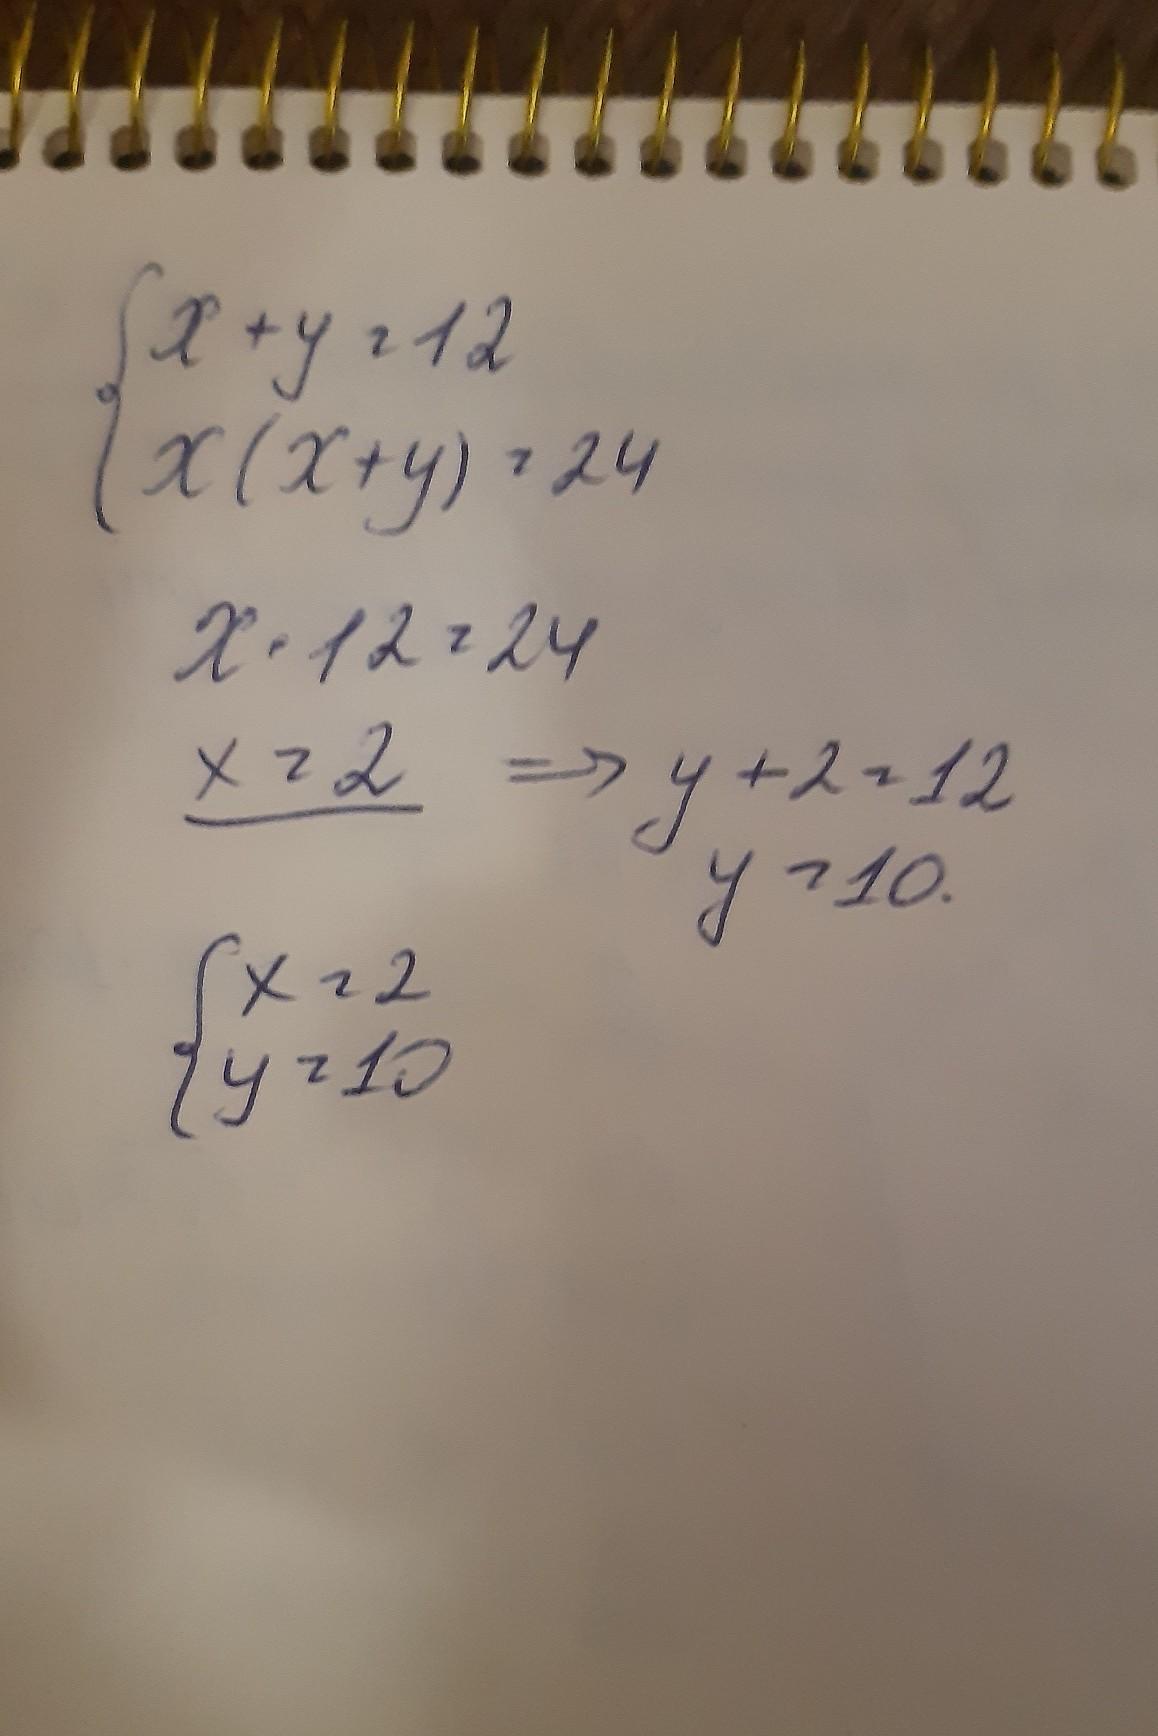 x + y = 12
x(x+y) = 24
x · 12 = 24
x = 2 ⇒ y + 2 = 12
y = 10.
x = 2
y = 10